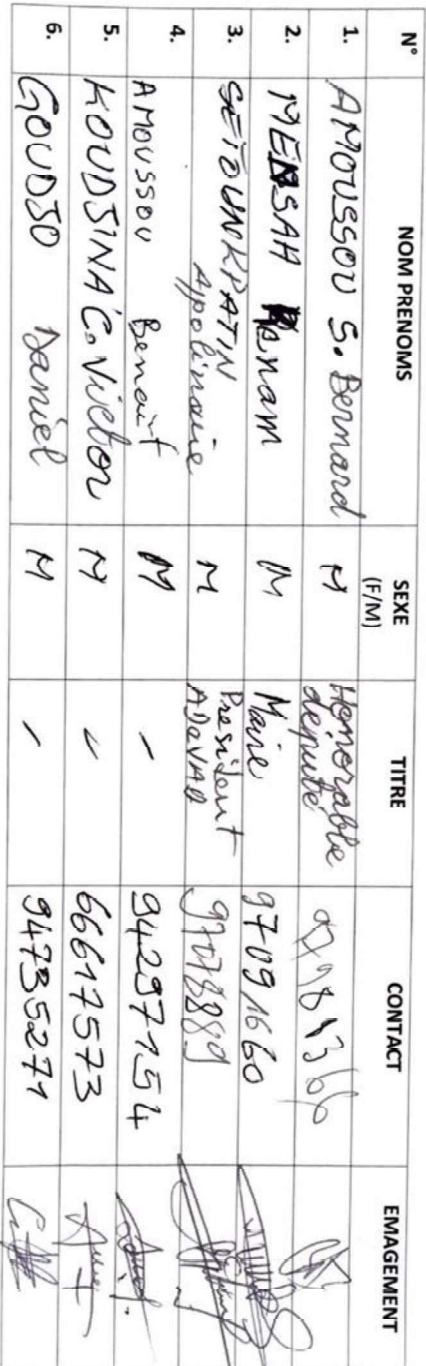 N° NOM PRENOMS SEXE (F/M) TITRE CONTACT EMAGEMENT
1. AMOUSSOU S. Bernard M Honorable député
2. MENSAH M Maire 97091660
3. SETOUNKPATIN Apolinaire M Président 97078889
4. AMOUSSOU Benoît M - 94297154
5. KOUDJINA C. Victor M - 66617573
6. GOUDJO Daniel M - 94735271